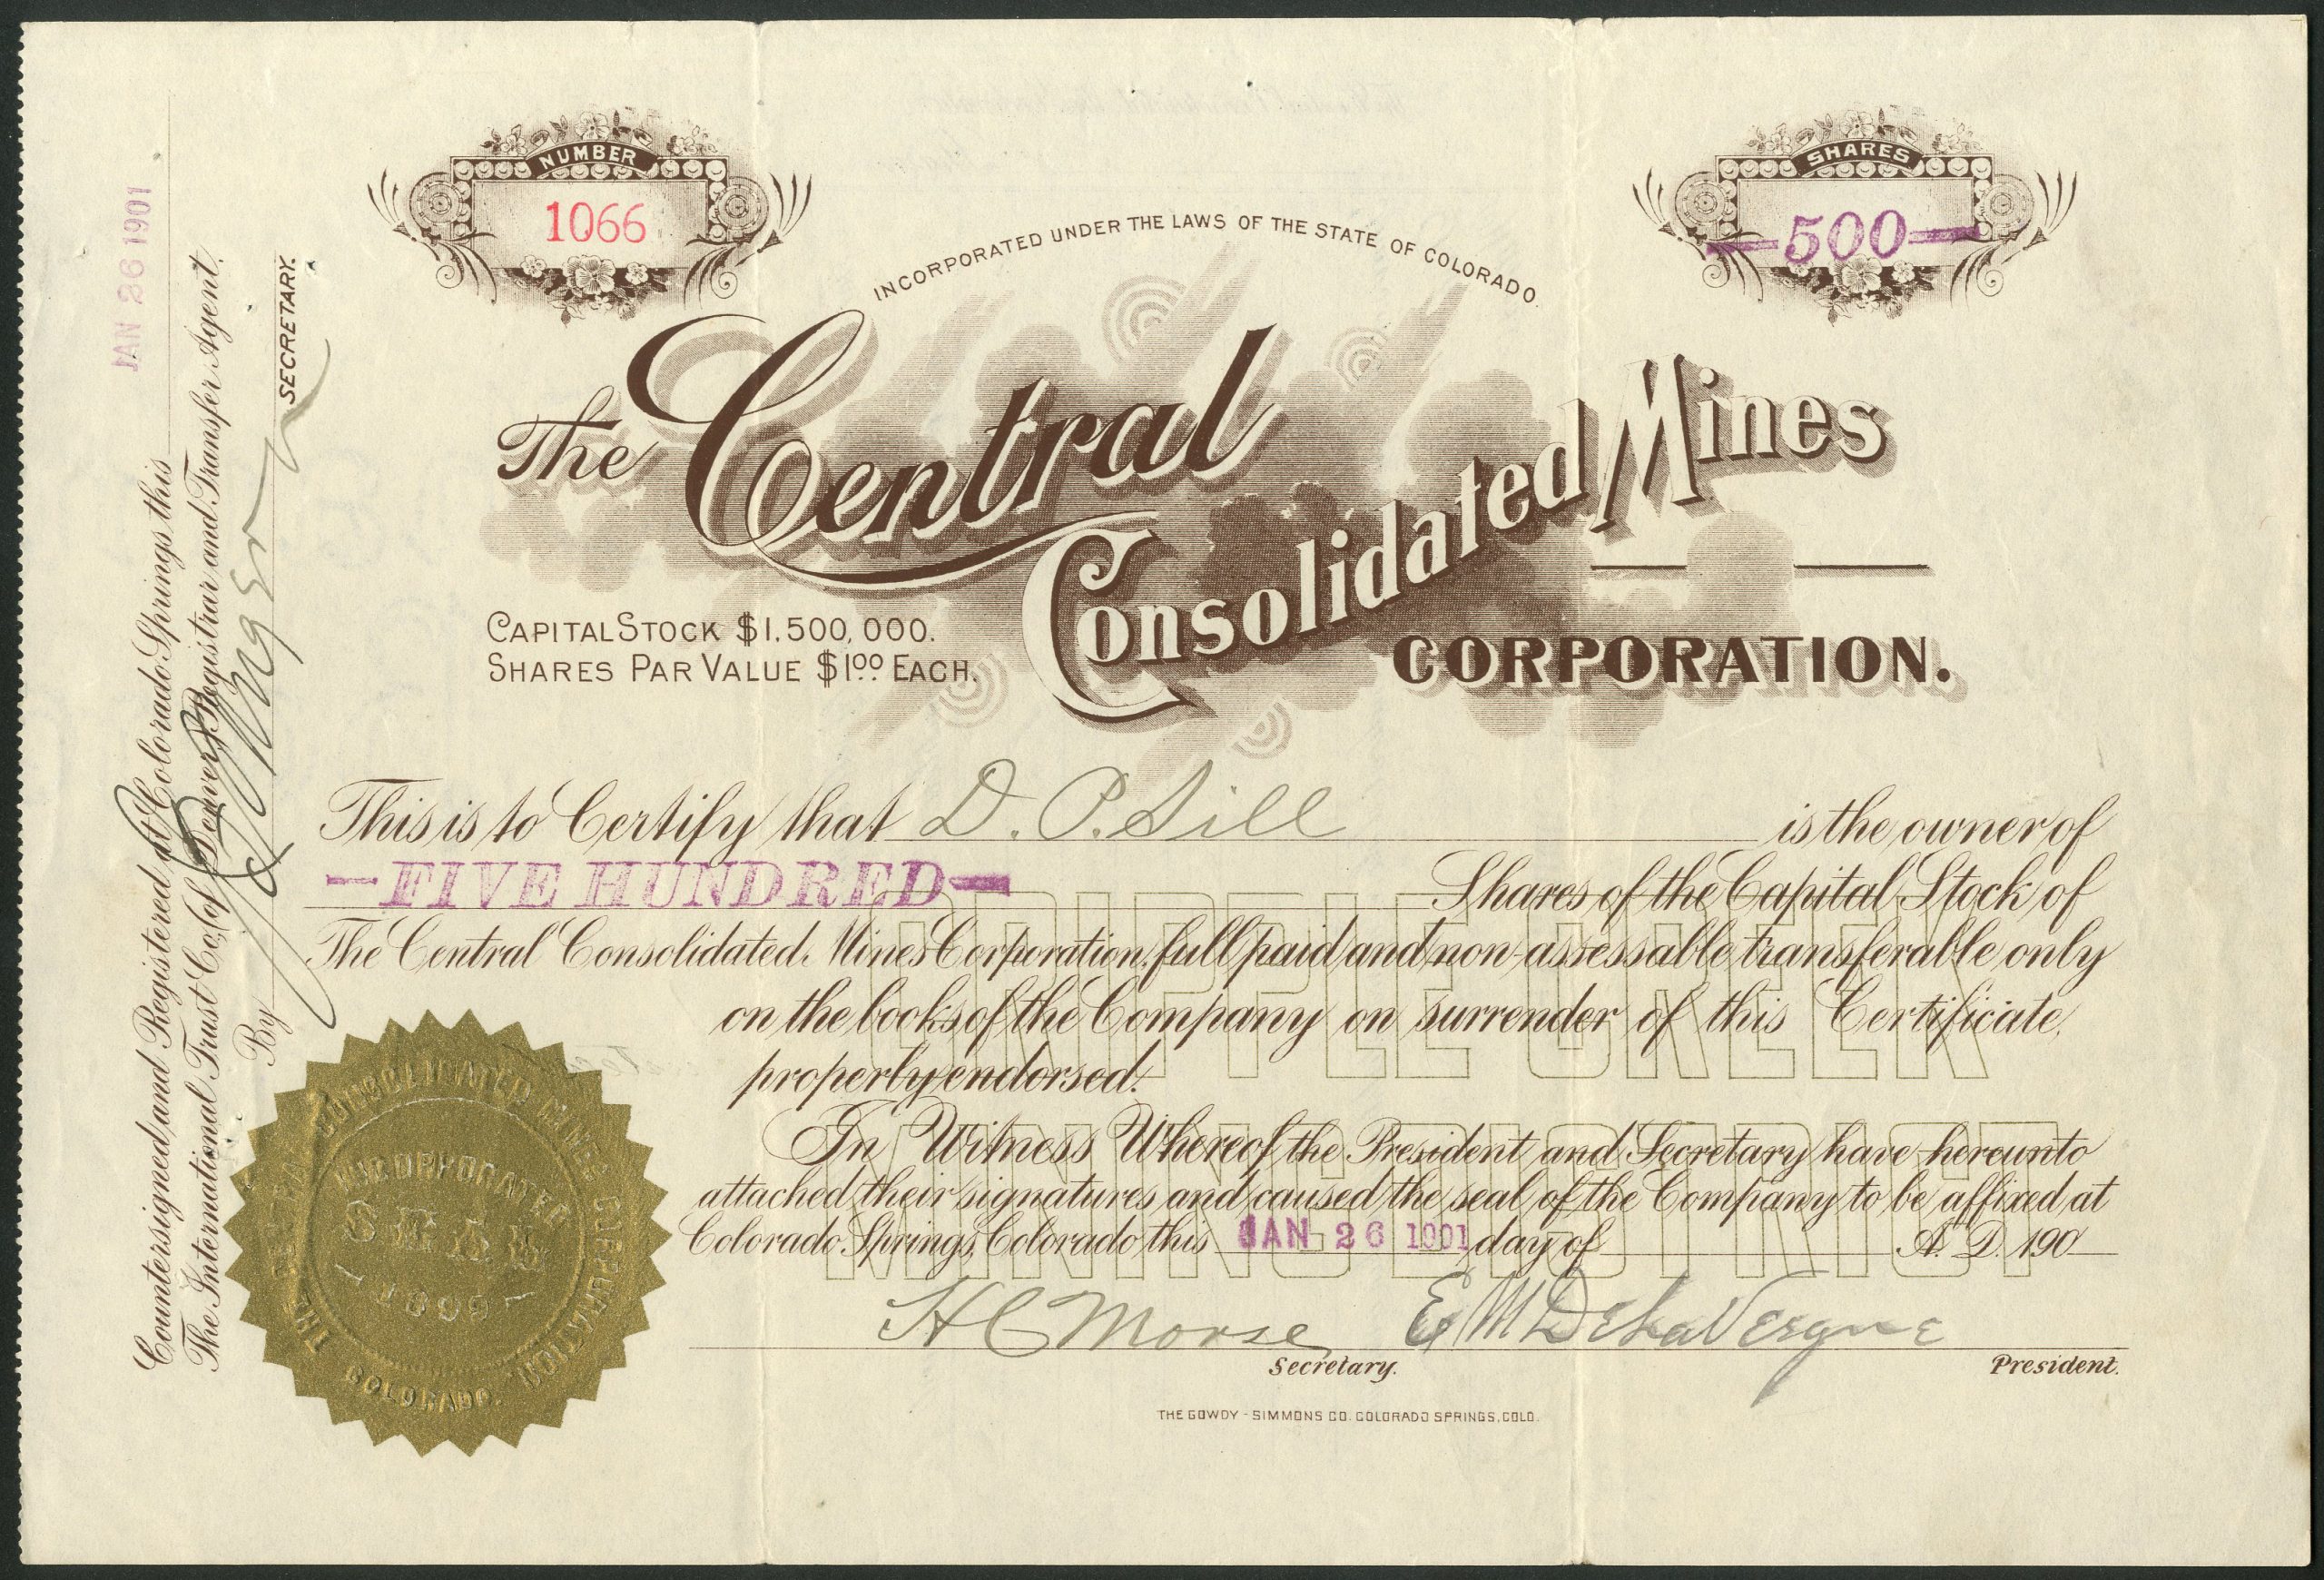 NUMBER
1066
SHARES
500
INCORPORATED UNDER THE LAWS OF THE STATE OF COLORADO.
The Central
Consolidated Mines
CORPORATION.
CAPITAL STOCK $1,500,000.
SHARES PAR VALUE $1.00 EACH.
This is to Certify that D. P. Sill is the owner of
—FIVE HUNDRED— Shares of the Capital Stock of
The Central Consolidated Mines Corporation, full paid and non-assessable transferable only
on the books of the Company on surrender of this Certificate,
properly endorsed.
In Witness Whereof the President and Secretary have hereunto
attached their signatures and caused the seal of the Company to be affixed at
Colorado Springs, Colorado this JAN 26 1901 day of A. D. 190
CRIPPLE CREEK
MINING DISTRICT
H C Morse
Secretary.
E M DeLaVergne
President.
THE GOWDY-SIMMONS CO. COLORADO SPRINGS, COLO.
Countersigned and Registered at Colorado Springs this JAN 26 1901
The International Trust Co., (of Denver) Registrar and Transfer Agent.
By SECRETARY.
THE CENTRAL CONSOLIDATED MINES CORPORATION
COLORADO.
INCORPORATED
SEAL
1899